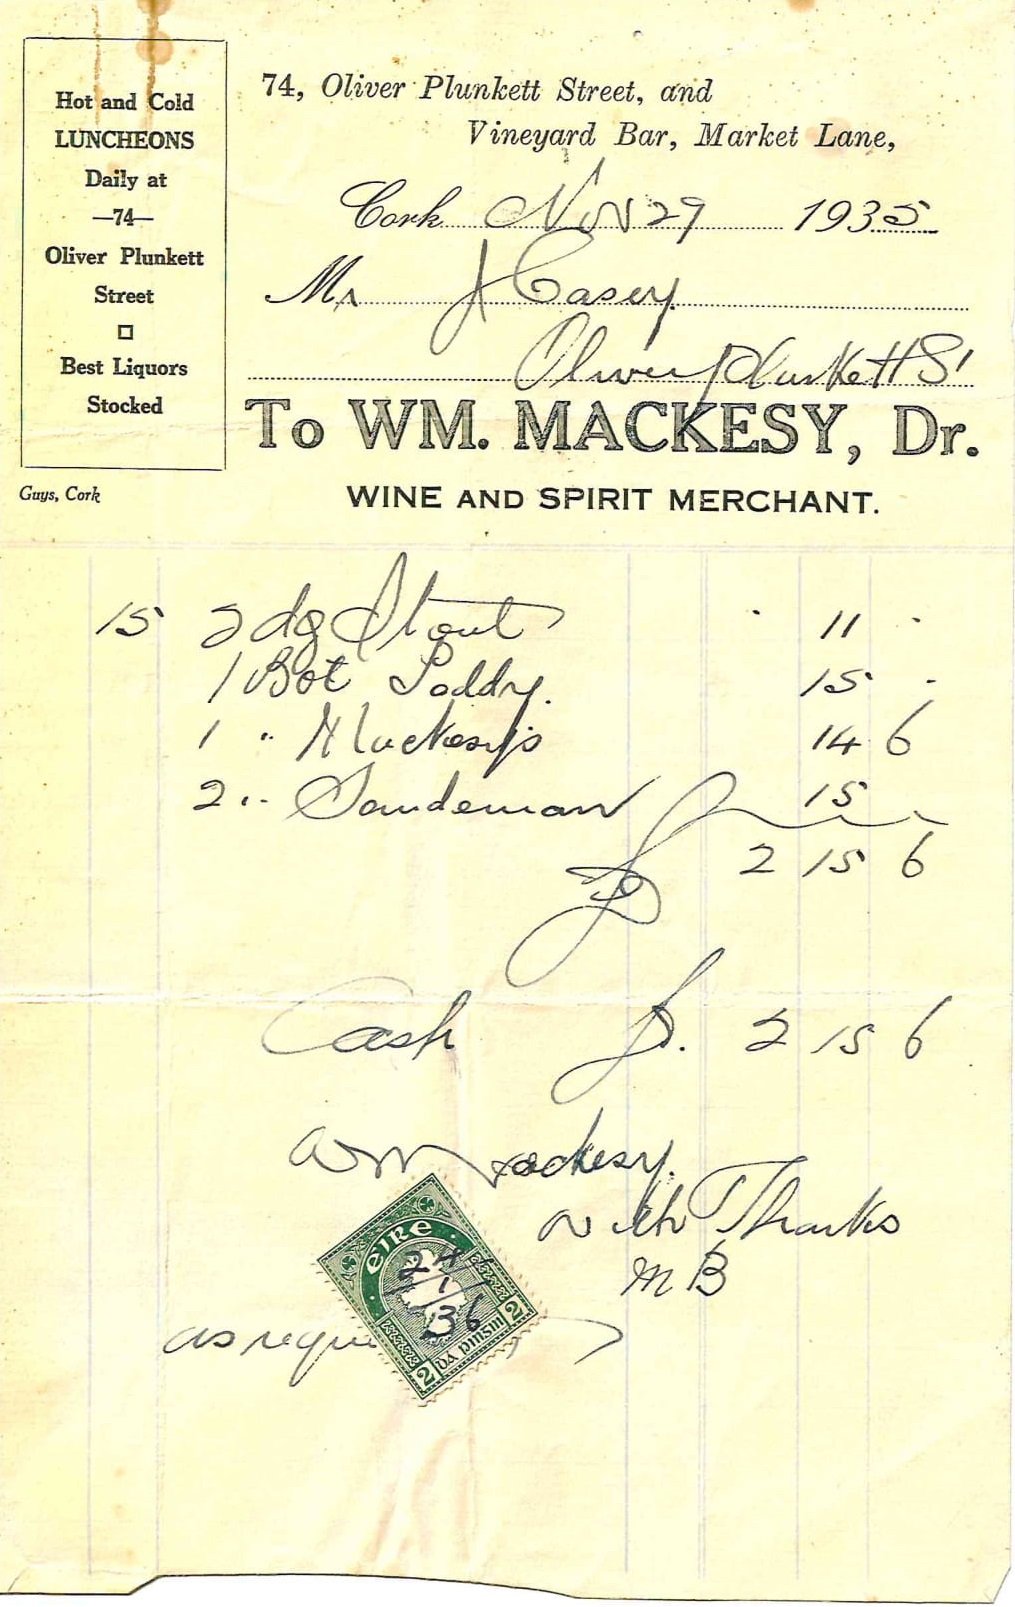 Hot and Cold
LUNCHEONS
Daily at
—74—
Oliver Plunkett
Street
Best Liquors
Stocked
Guys, Cork
74, Oliver Plunkett Street, and
Vineyard Bar, Market Lane,
Cork Nov 29 1935
Mr J Casey
Oliver Plunkett St
To WM. MACKESY, Dr.
WINE AND SPIRIT MERCHANT.
15 2 dz Stout 11 -
1 Bot Paddy. 15 -
1 " Mackesy's 14 6
2 " Sandeman 15 -
£ 2 15 6
Cash £. 2 15 6
Wm Mackesy.
with Thanks
MB
EIRE
24/1/36
2 DÁ PINSIN 2
as requ